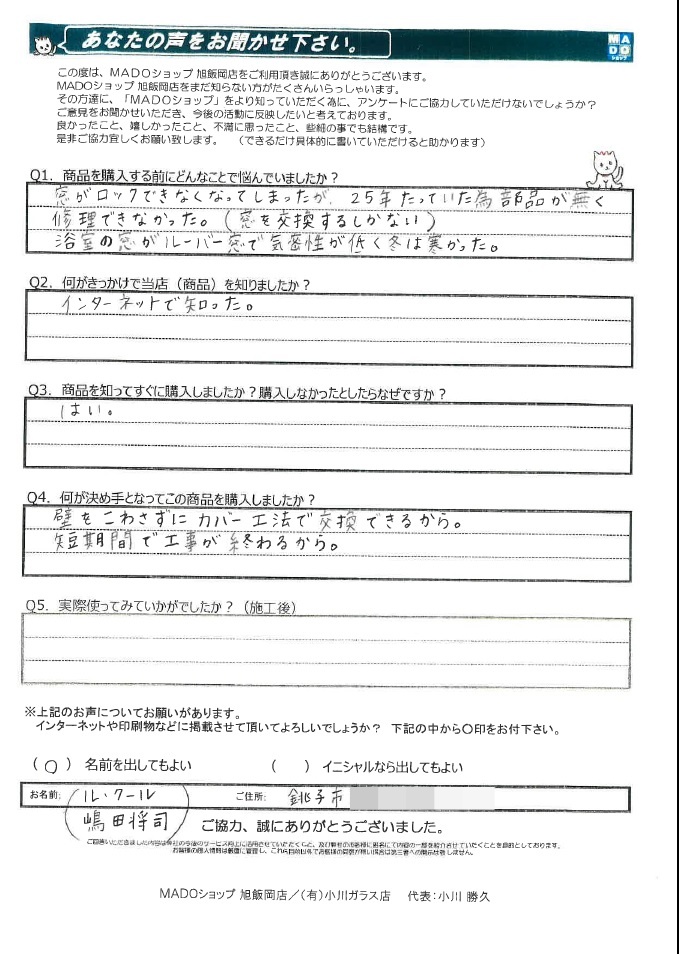 あなたの声をお聞かせ下さい。
MADO
ショップ
この度は、MADOショップ 旭飯岡店をご利用頂き誠にありがとうございます。
MADOショップ 旭飯岡店をまだ知らない方がたくさんいらっしゃいます。
その方達に、「MADOショップ」をより知っていただく為に、アンケートにご協力していただけないでしょうか？
ご意見をお聞かせいただき、今後の活動に反映したいと考えております。
良かったこと、嬉しかったこと、不満に思ったこと、些細の事でも結構です。
是非ご協力宜しくお願い致します。 （できるだけ具体的に書いていただけると助かります）
Q1. 商品を購入する前にどんなことで悩んでいましたか？
窓がロックできなくなってしまったが、25年たっていた為部品が無く
修理できなかった。（窓を交換するしかない）
浴室の窓がルーバー窓で気密性が低く冬は寒かった。
Q2. 何がきっかけで当店（商品）を知りましたか？
インターネットで知った。
Q3. 商品を知ってすぐに購入しましたか？購入しなかったとしたらなぜですか？
はい。
Q4. 何が決め手となってこの商品を購入しましたか？
壁をこわさずにカバー工法で交換できるから。
短期間で工事が終わるから。
Q5. 実際使ってみていかがでしたか？（施工後）
※上記のお声についてお願いがあります。
インターネットや印刷物などに掲載させて頂いてよろしいでしょうか？ 下記の中から〇印をお付下さい。
（ 〇 ） 名前を出してもよい （ ） イニシャルなら出してもよい
お名前: ル・クール ご住所: 銚子市
嶋田将司
ご協力、誠にありがとうございました。
MADOショップ 旭飯岡店／（有）小川ガラス店 代表：小川 勝久